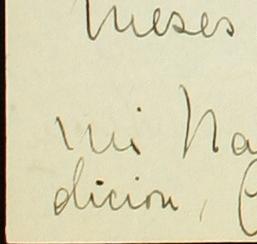 meses
mi Na
dicion, C